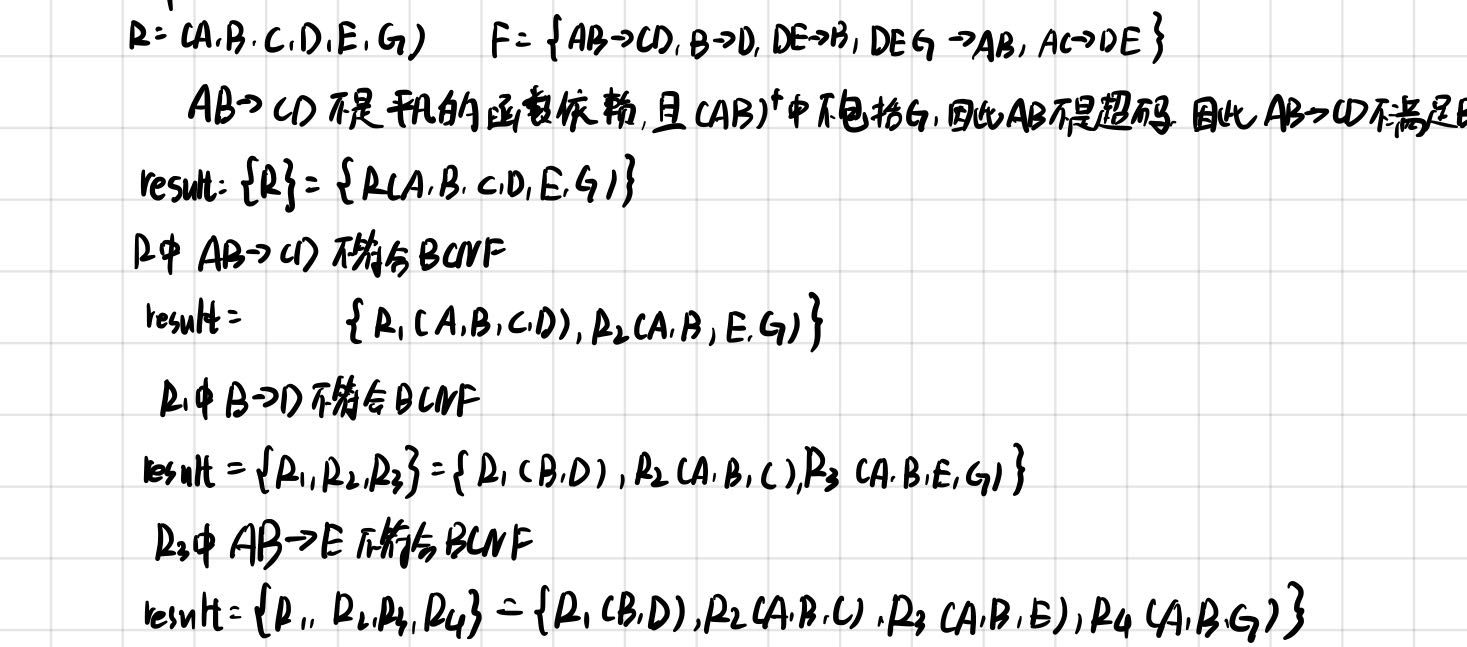 R=(A,B,C,D,E,G) F={AB→CD,B→D,DE→B,DEG→AB,AC→DE}
AB→CD不是平凡的函数依赖,且(AB)⁺中不包括G,因此AB不是超码 因此AB→CD不满足
result:{R}={R(A,B,C,D,E,G)}
R中 AB→CD 不符合BCNF
result= {R₁(A,B,C,D),R₂(A,B,E,G)}
R₁中B→D不符合BCNF
result={R₁,R₂,R₃}={R₁(B,D),R₂(A,B,C),R₃(A,B,E,G)}
R₃中 AB→E 不符合BCNF
result={R₁,R₂,R₃,R₄}={R₁(B,D),R₂(A,B,C),R₃(A,B,E),R₄(A,B,G)}